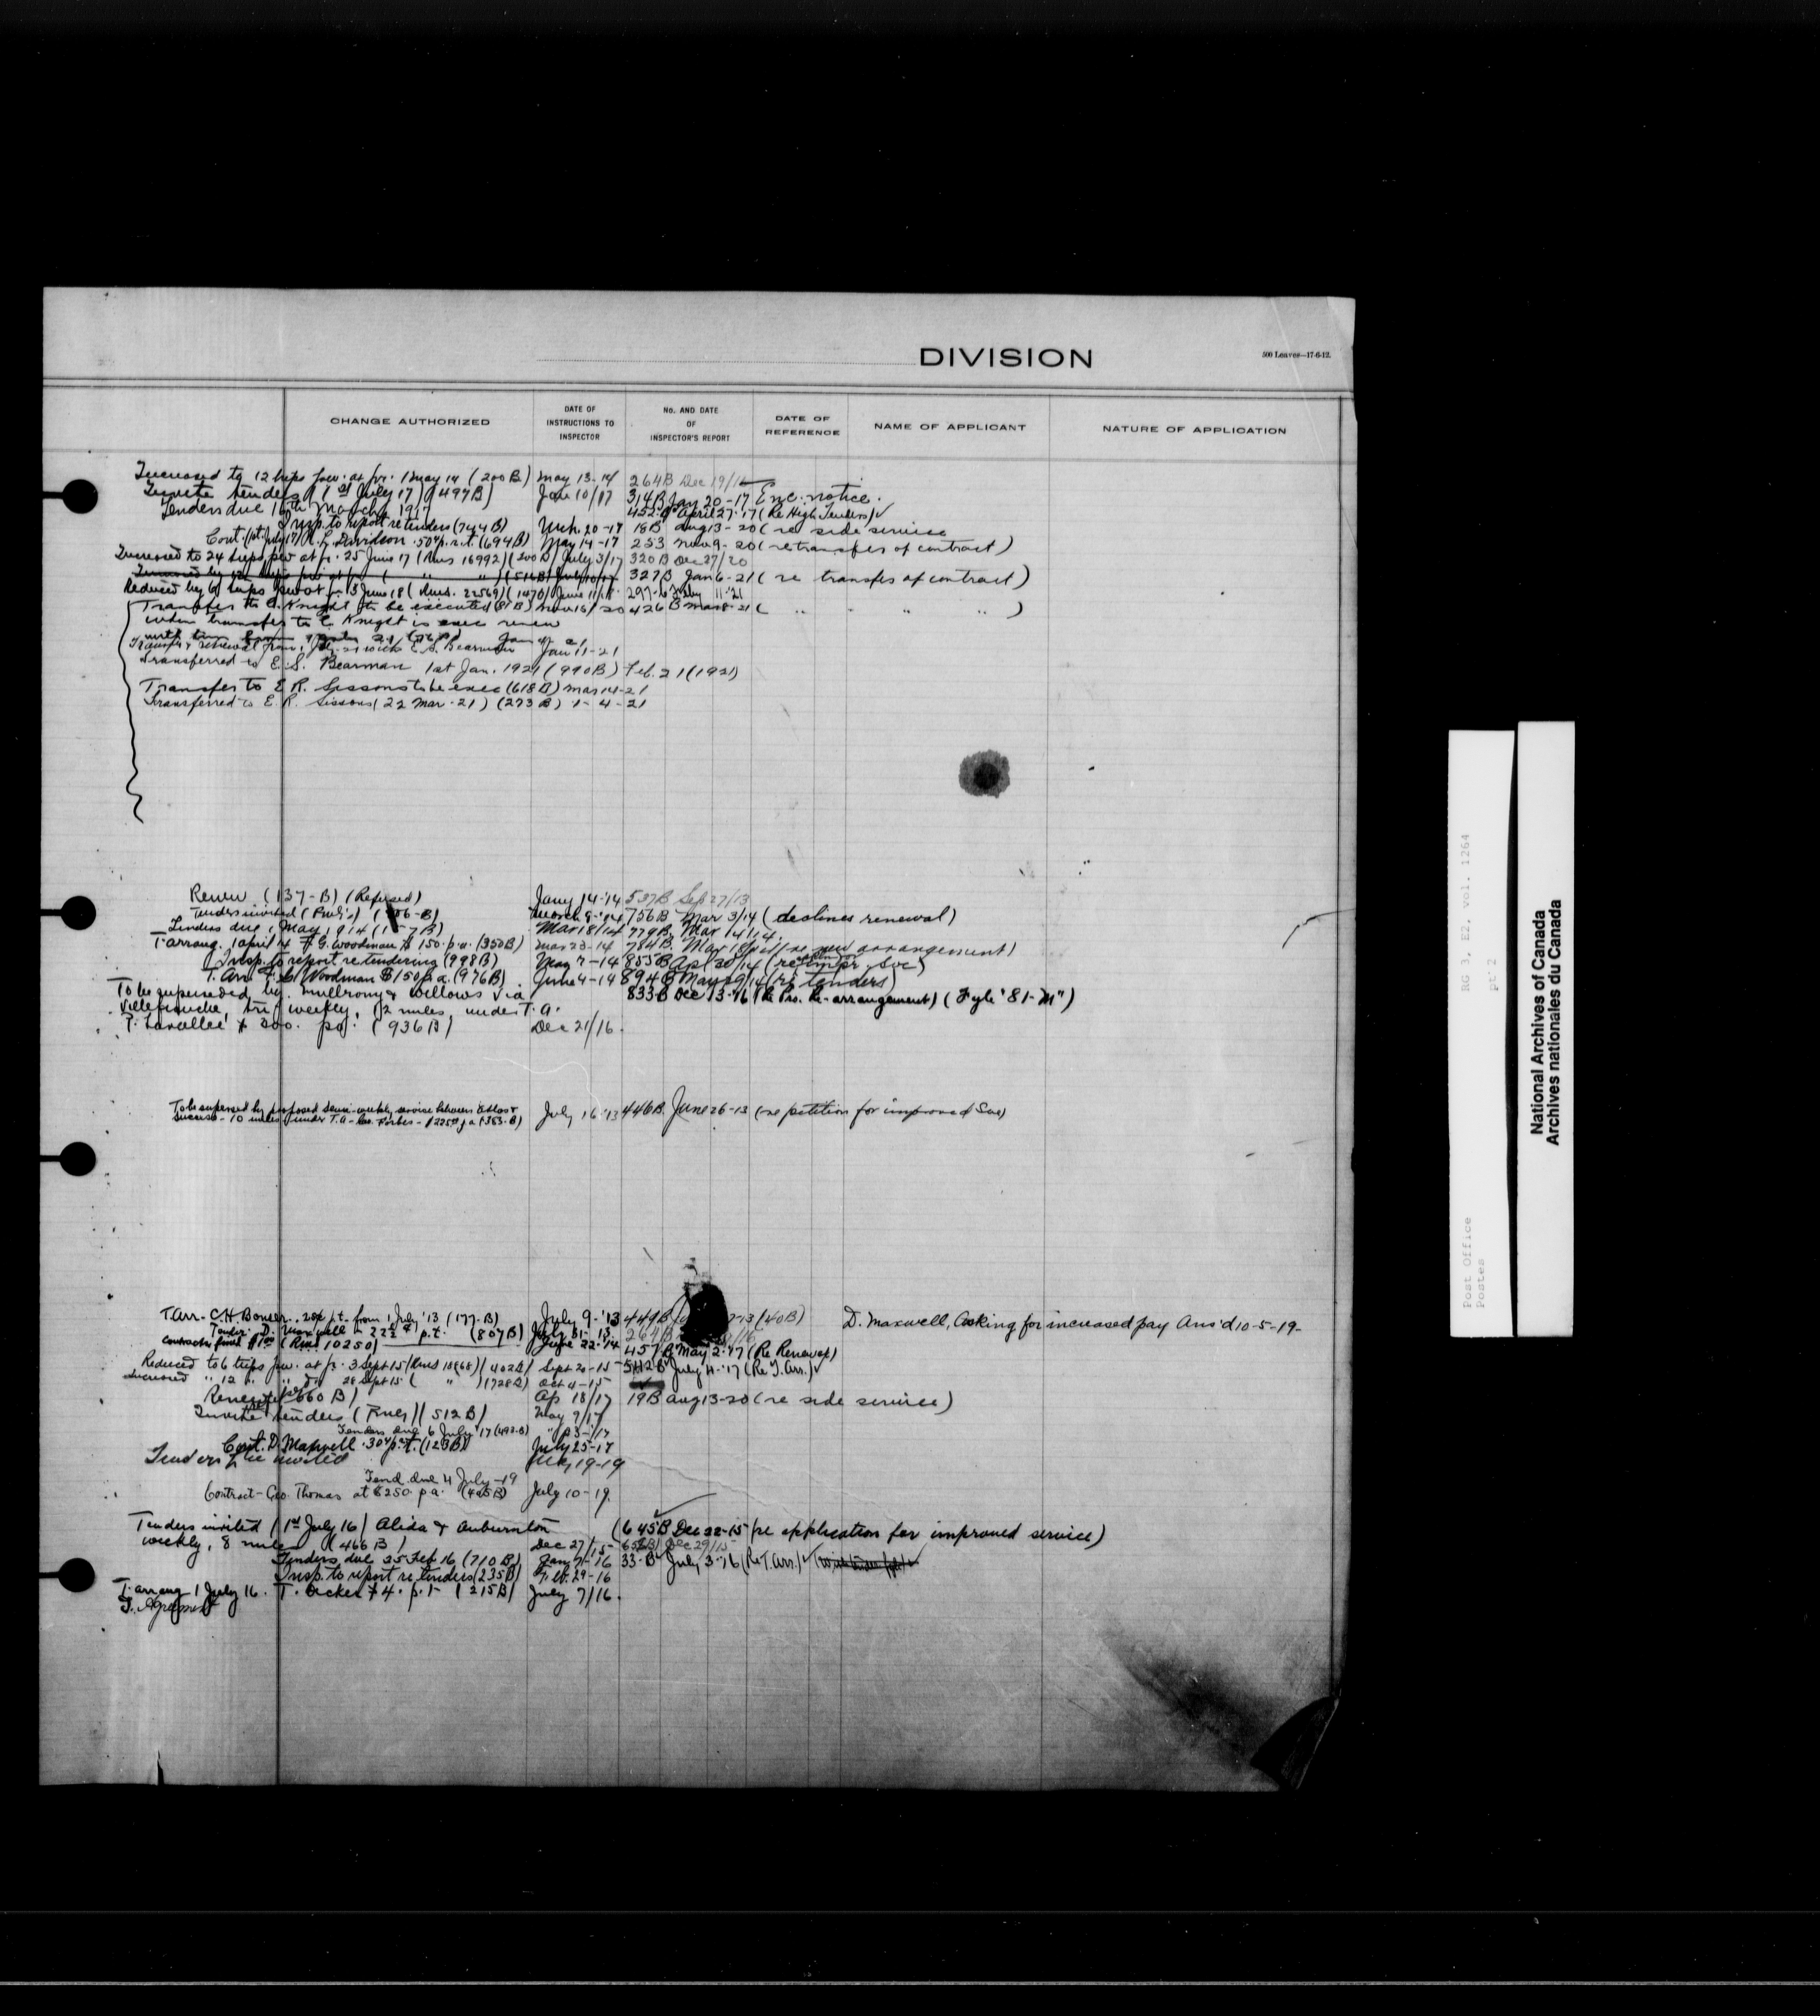 DIVISION
500 Leaves—17-6-12.
CHANGE AUTHORIZED
DATE OF INSTRUCTIONS TO INSPECTOR
No. AND DATE OF INSPECTOR'S REPORT
DATE OF REFERENCE
NAME OF APPLICANT
NATURE OF APPLICATION
Increased to 12 trips p.w. at fr. 1 May 14 (200 B) May 13-14 264B Dec 19/16
Invite tenders (1st July 17) (497B) Jan 10/17 314B Jan 20-17 Enc. notice.
Tenders due 16th March, 1917 452 B April 27-17 (Re High Tenders)
Insp. to report re tenders (744B) Mch. 20-17 18B Aug 13-20 (re side service
Cont. (1st July 17) R. L. Davidson .50 p.r.t. (694B) May 14-17 253 Nov 9-20 (re transfer of contract)
Increased to 24 trips p.w at fr. 25 June 17 (Rms 16992) (200 B) July 3/17 320B Dec 27/20
327B Jan 6-21 (re transfer of contract)
Reduced by 6 trips p.w at fr. 15 June 18 (Rms. 22569) (1470) June 11/18
Transfer to E. Knight to be executed (81B) Nov 16/20 426 B Mar 8-21 ( " " " )
When transfer to E. Knight is exec renew
E. S. Bearman Jan 11-21
Transferred to E. S. Bearman 1st Jan. 1921 (990B) Feb. 21 (1921)
Transfer to E R. Sissons to be exec (618 B) Mar 14-21
Transferred to E. R. Sissons (22 Mar-21) (273 B) 1-4-21
Renew (137-B) (Refused) Jany 14-14 537B Sep 27/13
Tenders invited March 9-14 756B Mar 3/14 (declines renewal)
Tenders due 1 May, 1914 Mar 18/14 779B. Mar 14/14.
T. arrang. 1 April 14 F. G. Woodman $150. p.a. (350B) Mar 23-14 784B. Mar 18/14 (re new arrangement)
Insp. to report re tendering (998B) May 7-14 855B Apl 30/14
T. Arr. F. G. Woodman $150 p.a. (976B) June 4-14 894 B May 29/14 (re tenders)
To be superseded by Mullrany & Willows via 833-B Dec 13-16 (Re Pro. Re-arrangement) (Fyle "81-M")
Villefranche, tri weekly, 12 miles, under T. a.
P. Lavallee $300. p.a. (936B) Dec 21/16.
To be superseded by proposed semi-weekly service between Atlas & July 16-13 446B. June 26-13 (re petition for improved Svc)
Success - 10 miles under T.a - Geo. Forbes - $225.00 p.a (353-B)
T. Arr. - C. H. Bonser. .20¢ p.t. from 1 July '13 (177-B) July 9-'13 449B (40B) D. Maxwell, Asking for increased pay Ans'd 10-5-19-
Tender D. Maxwell - 22½¢ p.t. (807B) July 31-13 264B
(Rms 10250) June 22-'14 457 B May 2-'17 (Re Renewal)
Reduced to 6 trips p.w. at fr. 3 Sept 15 (Rms 10868) (402B) Sept 20-15 542 B July 4-'17 (Re T. Arr.)
Increased " 12 " " 28 Sept 15 ( " ) (1728B) Oct 4-15
Renew (660 B) Ap 18/17 19B Aug 13-20 (re side service)
Invite tenders (512B) May 9/17
Tenders due 6 July '17
Cont. D. Maxwell .30¢ p.t. (123B) July 25-17
Tenders to be invited May 19-19
Tend. due 4 July -19
Contract - Geo. Thomas at $250. p a. (425B) July 10-19.
Tenders invited (1st July 16) Alida & Auburnton (645B Dec 22-15 (re application for improved service)
weekly, 8 miles (466 B) Dec 27/15 Dec 29/15
Tenders due 25 Feb 16 (710 B) Jany 7-16 33-B July 3-'16 (Re T. Arr.)
Insp. to report re tenders (235B) Feb. 29-16
T. arrang 1 July 16. T. Acker $4. p.t- (215B) July 7/16.
T. Agreement
RG 3, E2, vol. 1264
pt 2
Post Office
Postes
National Archives of Canada
Archives nationales du Canada